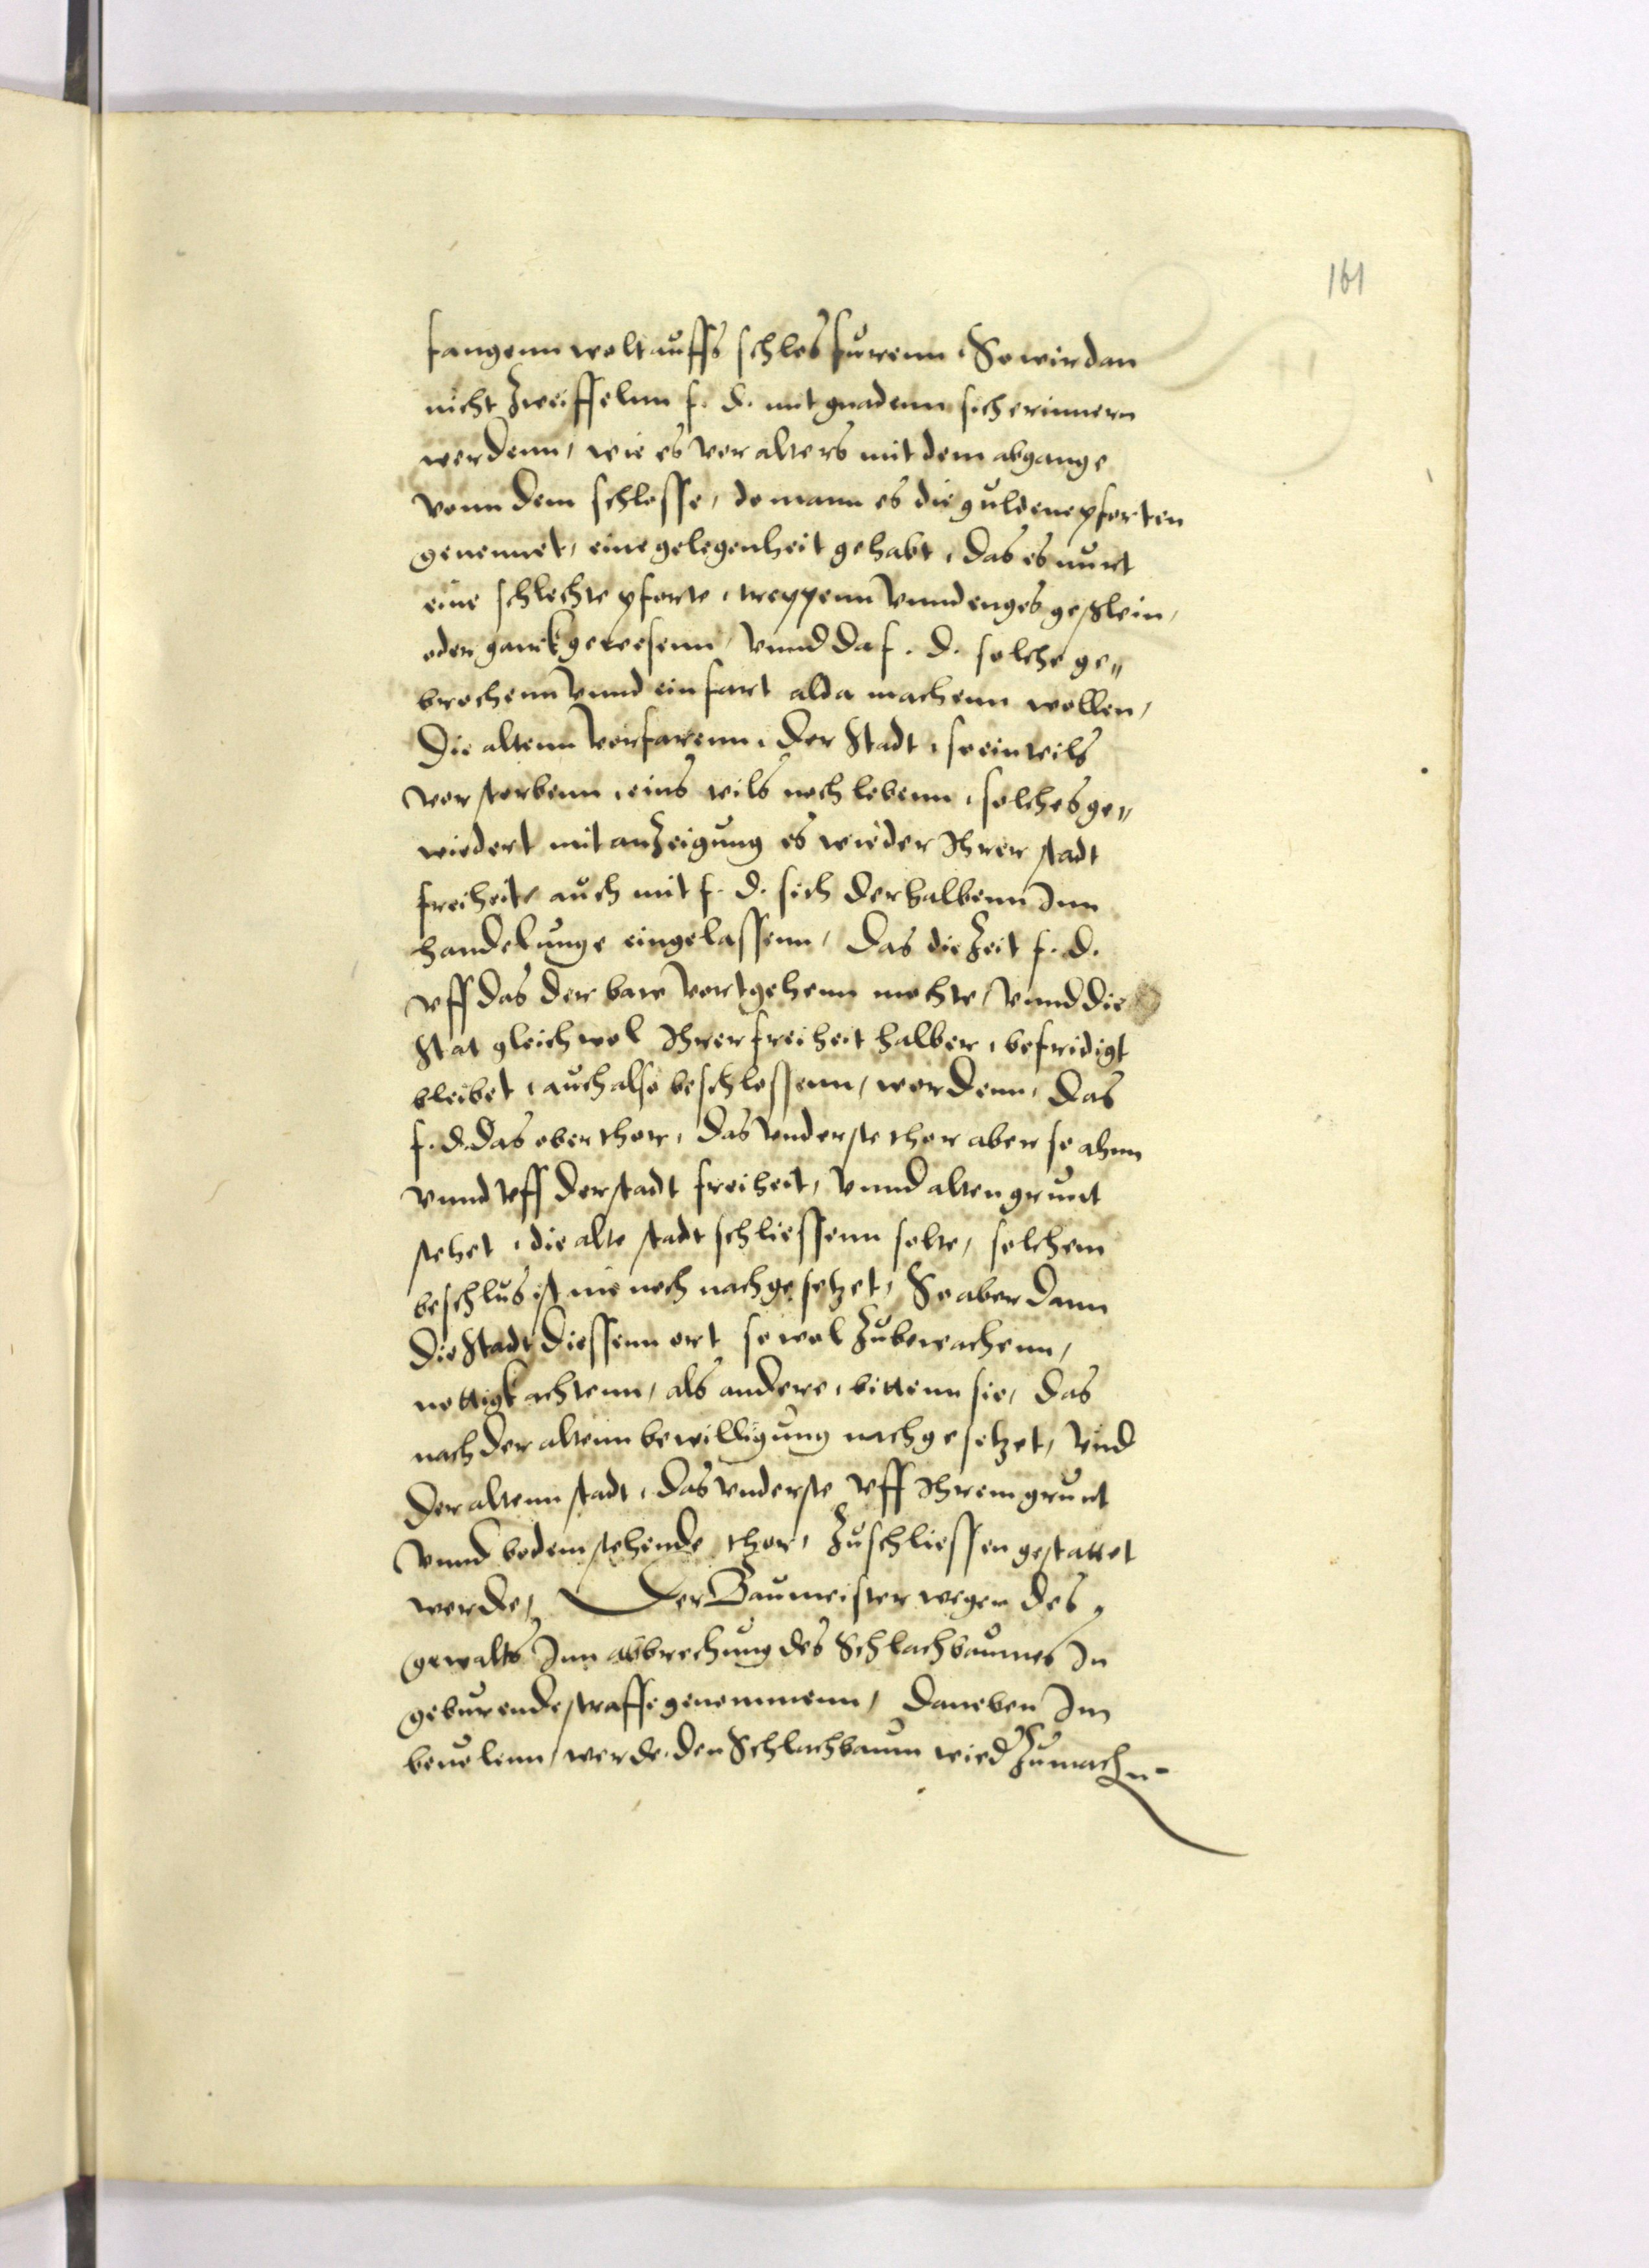 161
fangenn wolt auffs schlos furenn, So wir dan
nicht Zweiffelnn f. d. mit gnadenn sich erinnern
werdenn, wie es vor alters mit dem abgange
vonn dem schlosse, do mann es die guldene pforten
genennet, eine gelegenheit gehabt, das es nurt
eine schlechte pforte, treppenn vnnd enges geßlein,
oder gank gewesenn, vnnd da f. d. solche ge„
brochenn vnnd ein fart alda machenn wollen,
Die altenn vorfarenn, der Stadt, so einteils
vorstorbenn, eins teils noch lebenn, solches ge„
wiedert mit anZeigung es wieder Ihrer stadt
freiheit, auch mit f. d. sich derhalbenn Inn
handelunge eingelassenn, Das die Zeit f. d.
vff das der baw vortgehenn mochte, vnnd die
Stat gleichwol Ihrer freiheit halber, befridigt
bleibet, auch also beschlossenn, wordenn, Das
f. d. das ober thor, das vnderste thor aber so ahnn
vnnd vff der stadt freiheit, vnnd alten grunt
stehet, die alte stadt schliessenn solte, solchem
beschlus ist nie noch nachgesetzet, So aber dann
Die Stadt diessenn ort so wol Zubewachenn,
nottigk achtenn, als andere, bittenn sie, Das
nach der altenn bewilligung nachgesetzet, vnd
der altenn stadt, das vnderste vff Ihrem grunt
vnnd bodem stehende thor, Zuschliessen gestattet
werde, Der Baumeister wegen des
gewalts Inn abbrechung des Schlachbaumes In
geburende straffe genommenn, Daneben Im
beuolenn, werde, den Schlachbaum wied Zumachn